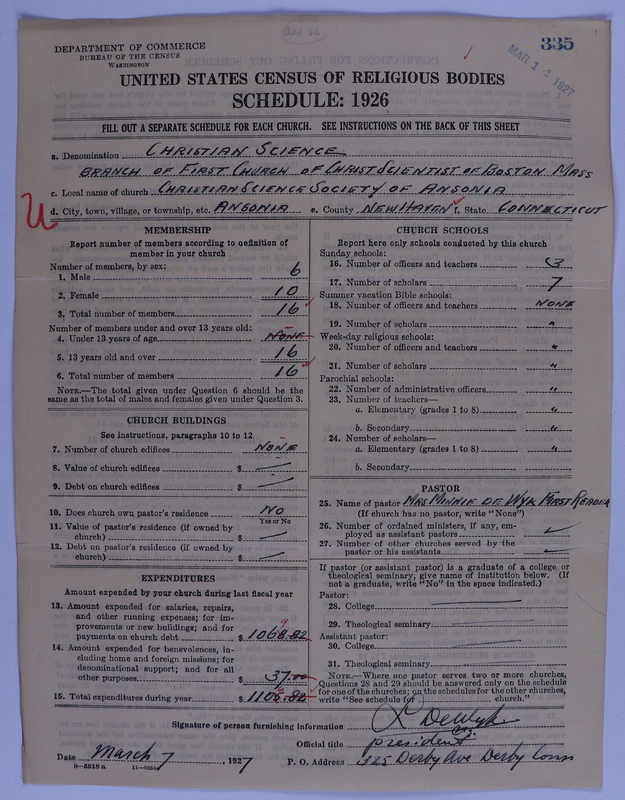 335
MAR 1 1927
DEPARTMENT OF COMMERCE
BUREAU OF THE CENSUS
WASHINGTON
UNITED STATES CENSUS OF RELIGIOUS BODIES
SCHEDULE: 1926
FILL OUT A SEPARATE SCHEDULE FOR EACH CHURCH. SEE INSTRUCTIONS ON THE BACK OF THIS SHEET
a. Denomination CHRISTIAN SCIENCE
BRANCH OF FIRST CHURCH OF CHRIST SCIENTIST OF BOSTON MASS
c. Local name of church CHRISTIAN SCIENCE SOCIETY OF ANSONIA
U d. City, town, village, or township, etc. ANSONIA e. County NEW HAVEN f. State CONNECTICUT
MEMBERSHIP
Report number of members according to definition of
member in your church
Number of members, by sex:
1. Male 6
2. Female 10
3. Total number of members 16
Number of members under and over 13 years old:
4. Under 13 years of age NONE
5. 13 years old and over 16
6. Total number of members 16
NOTE.—The total given under Question 6 should be the
same as the total of males and females given under Question 3.
CHURCH BUILDINGS
See instructions, paragraphs 10 to 12
7. Number of church edifices NONE
8. Value of church edifices $
9. Debt on church edifices $
10. Does church own pastor's residence? NO
Yes or No
11. Value of pastor's residence (if owned by
church) $
12. Debt on pastor's residence (if owned by
church) $
EXPENDITURES
Amount expended by your church during last fiscal year
13. Amount expended for salaries, repairs,
and other running expenses; for im-
provements or new buildings; and for
payments on church debt $ 1068.82
9
14. Amount expended for benevolences, in-
cluding home and foreign missions; for
denominational support; and for all
other purposes $ 37.00
15. Total expenditures during year $ 1105.82
CHURCH SCHOOLS
Report here only schools conducted by this church
Sunday schools:
16. Number of officers and teachers 3
17. Number of scholars 7
Summer vacation Bible schools:
18. Number of officers and teachers NONE
19. Number of scholars "
Week-day religious schools:
20. Number of officers and teachers "
21. Number of scholars "
Parochial schools:
22. Number of administrative officers "
23. Number of teachers—
a. Elementary (grades 1 to 8) "
b. Secondary "
24. Number of scholars—
a. Elementary (grades 1 to 8) "
b. Secondary "
PASTOR
25. Name of pastor MRS MINNIE DE WYK FIRST READER
(If church has no pastor, write "None")
26. Number of ordained ministers, if any, em-
ployed as assistant pastors
27. Number of other churches served by the
pastor or his assistants
If pastor (or assistant pastor) is a graduate of a college or
theological seminary, give name of institution below. (If
not a graduate, write "No" in the space indicated.)
Pastor:
28. College
29. Theological seminary
Assistant pastor:
30. College
31. Theological seminary
NOTE.—Where one pastor serves two or more churches,
Questions 28 and 29 should be answered only on the schedule
for one of the churches; on the schedules for the other churches,
write "See schedule for church."
Signature of person furnishing information L DeWyk
Official title President
Date March 7, 1927 P. O. Address 325 Derby Ave Derby Conn
8—5518 a